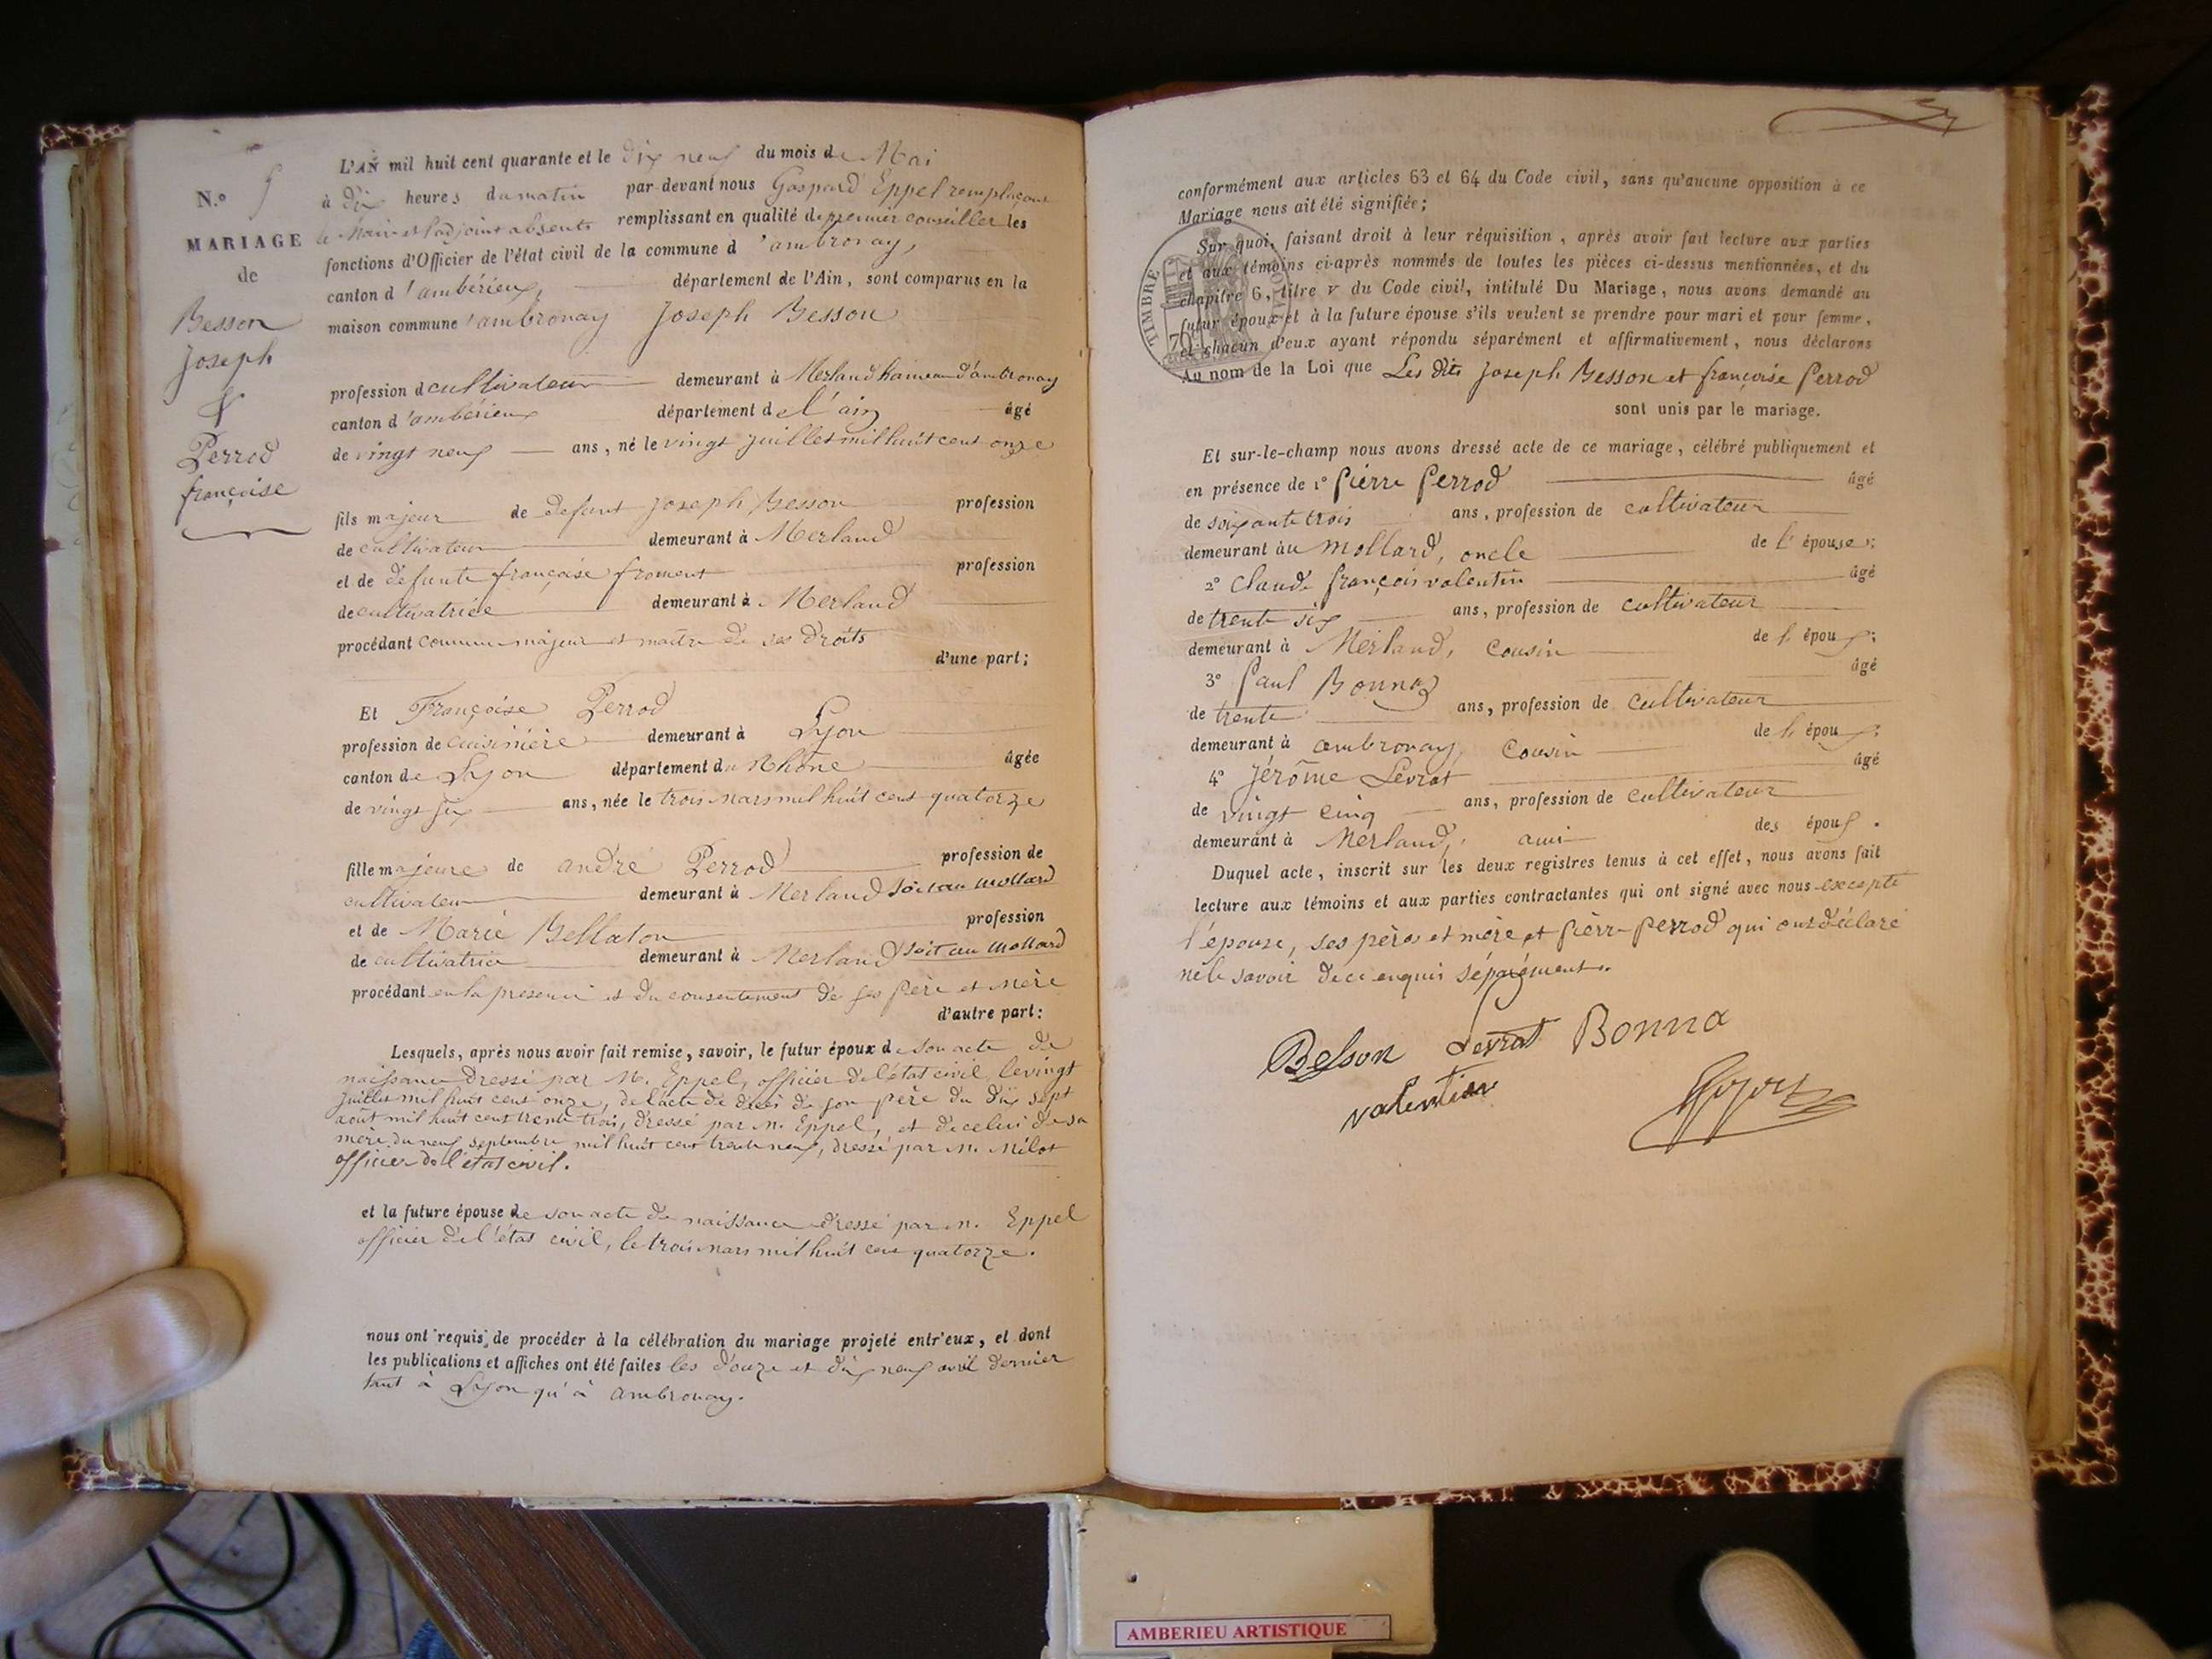 N.o 5
MARIAGE
de
Besson
Joseph
&
Perrod
françoise
L'AN mil huit cent quarante et le dix neuf du mois de Mai
à dix heures du matin par-devant nous Gaspard Eppel remplaçant
le Maire et l'adjoint absents remplissant en qualité de premier conseiller les
fonctions d'Officier de l'état civil de la commune d'ambronay,
canton d'ambérieux, département de l'Ain, sont comparus en la
maison commune d'ambronay Joseph Besson
profession de cultivateur demeurant à Merland hameau d'ambronay
canton d'ambérieux département de l'ain âgé
de vingt neuf ans, né le vingt juillet mil huit cent onze
fils majeur de defunt Joseph Besson profession
de cultivateur demeurant à Merland
et de défunte françoise froment profession
de cultivatrice demeurant à Merland
procédant comme majeur et maître de ses droits
d'une part;
Et Françoise Perrod
profession de cuisinière demeurant à Lyon
canton de Lyon département du Rhône âgée
de vingt six ans, née le trois mars mil huit cent quatorze
fille majeure de andré Perrod profession de
cultivateur demeurant à Merland soit au mollard
et de Marie Bellaton profession
de cultivatrice demeurant à Merland soit au mollard
procédant en la presence et du consentement de ses père et mère
d'autre part:
Lesquels, après nous avoir fait remise, savoir, le futur époux de son acte de
naissance dressé par M. Eppel, officier de l'état civil, le vingt
juillet mil huit cent onze, de l'acte de décès de son père du dix sept
août mil huit cent trente trois, dressé par M. Eppel, et de celui de sa
mère du neuf septembre mil huit cent trente neuf, dressé par M. Milot
officier de l'état civil.
et la future épouse de son acte de naissance dressé par M. Eppel
officier de l'état civil, le trois mars mil huit cent quatorze.
nous ont requis de procéder à la célébration du mariage projeté entr'eux, et dont
les publications et affiches ont été faites les douze et dix neuf avril dernier
tant à Lyon qu'à ambronay.
conformément aux articles 63 et 64 du Code civil, sans qu'aucune opposition à ce
Mariage nous ait été signifiée;
TIMBRE ROYAL
70c
Sur quoi, faisant droit à leur réquisition, après avoir fait lecture aux parties
et aux témoins ci-après nommés de toutes les pièces ci-dessus mentionnées, et du
chapitre 6, titre v du Code civil, intitulé Du Mariage, nous avons demandé au
futur époux et à la future épouse s'ils veulent se prendre pour mari et pour femme,
et chacun d'eux ayant répondu séparément et affirmativement, nous déclarons
Au nom de la Loi que Les dits Joseph Besson et françoise Perrod
sont unis par le mariage.
Et sur-le-champ nous avons dressé acte de ce mariage, célébré publiquement et
en présence de 1° Pierre Perrod âgé
de soixante trois ans, profession de cultivateur
demeurant au mollard, oncle de l'épouse;
2° Claude françois valentin âgé
de trente six ans, profession de cultivateur
demeurant à Merland, cousin de l'époux;
3° Paul Bonna âgé
de trente ans, profession de cultivateur
demeurant à ambronay, cousin de l'époux;
4° Jérôme Levrat âgé
de vingt cinq ans, profession de cultivateur
demeurant à Merland, ami des époux.
Duquel acte, inscrit sur les deux registres tenus à cet effet, nous avons fait
lecture aux témoins et aux parties contractantes qui ont signé avec nous excepté
l'épouse, ses père et mère et pierre perrod qui ont déclaré
ne le savoir de ce enquis séparément.
Besson Levrat Bonna
valentin
AMBERIEU ARTISTIQUE